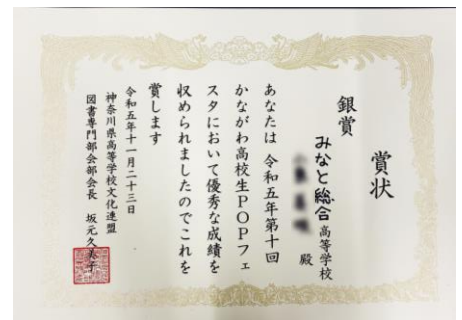 賞状
銀賞
みなと総合高等学校
殿
あなたは 令和五年第十回
かながわ高校生POPフェ
スタにおいて優秀な成績を
収められましたのでこれを
賞します
令和五年十一月二十三日
神奈川県高等学校文化連盟
図書専門部会部会長 坂元久美子